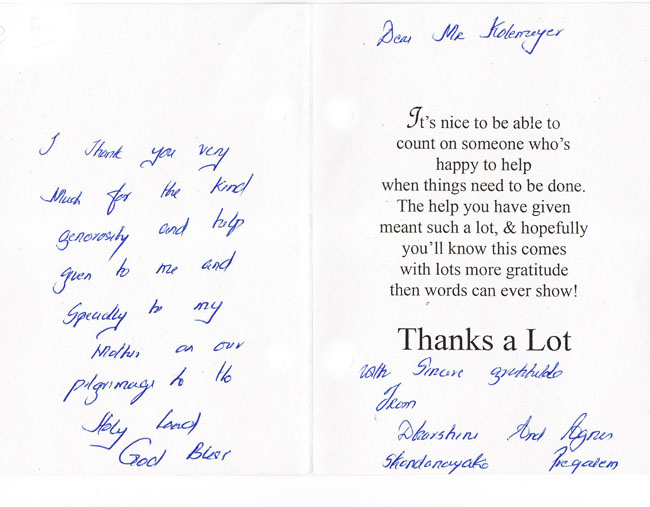 I Thank you very
Much for the kind
generosity and help
given to me and
Specially to my
Mother on our
pilgrimage to the
Holy Land
God Bless
Dear Mr Kolemeyer
It's nice to be able to
count on someone who's
happy to help
when things need to be done.
The help you have given
meant such a lot, & hopefully
you'll know this comes
with lots more gratitude
then words can ever show!
Thanks a Lot
with Sincere gratitude
From
Dharshini And Agnes
Skandanayake